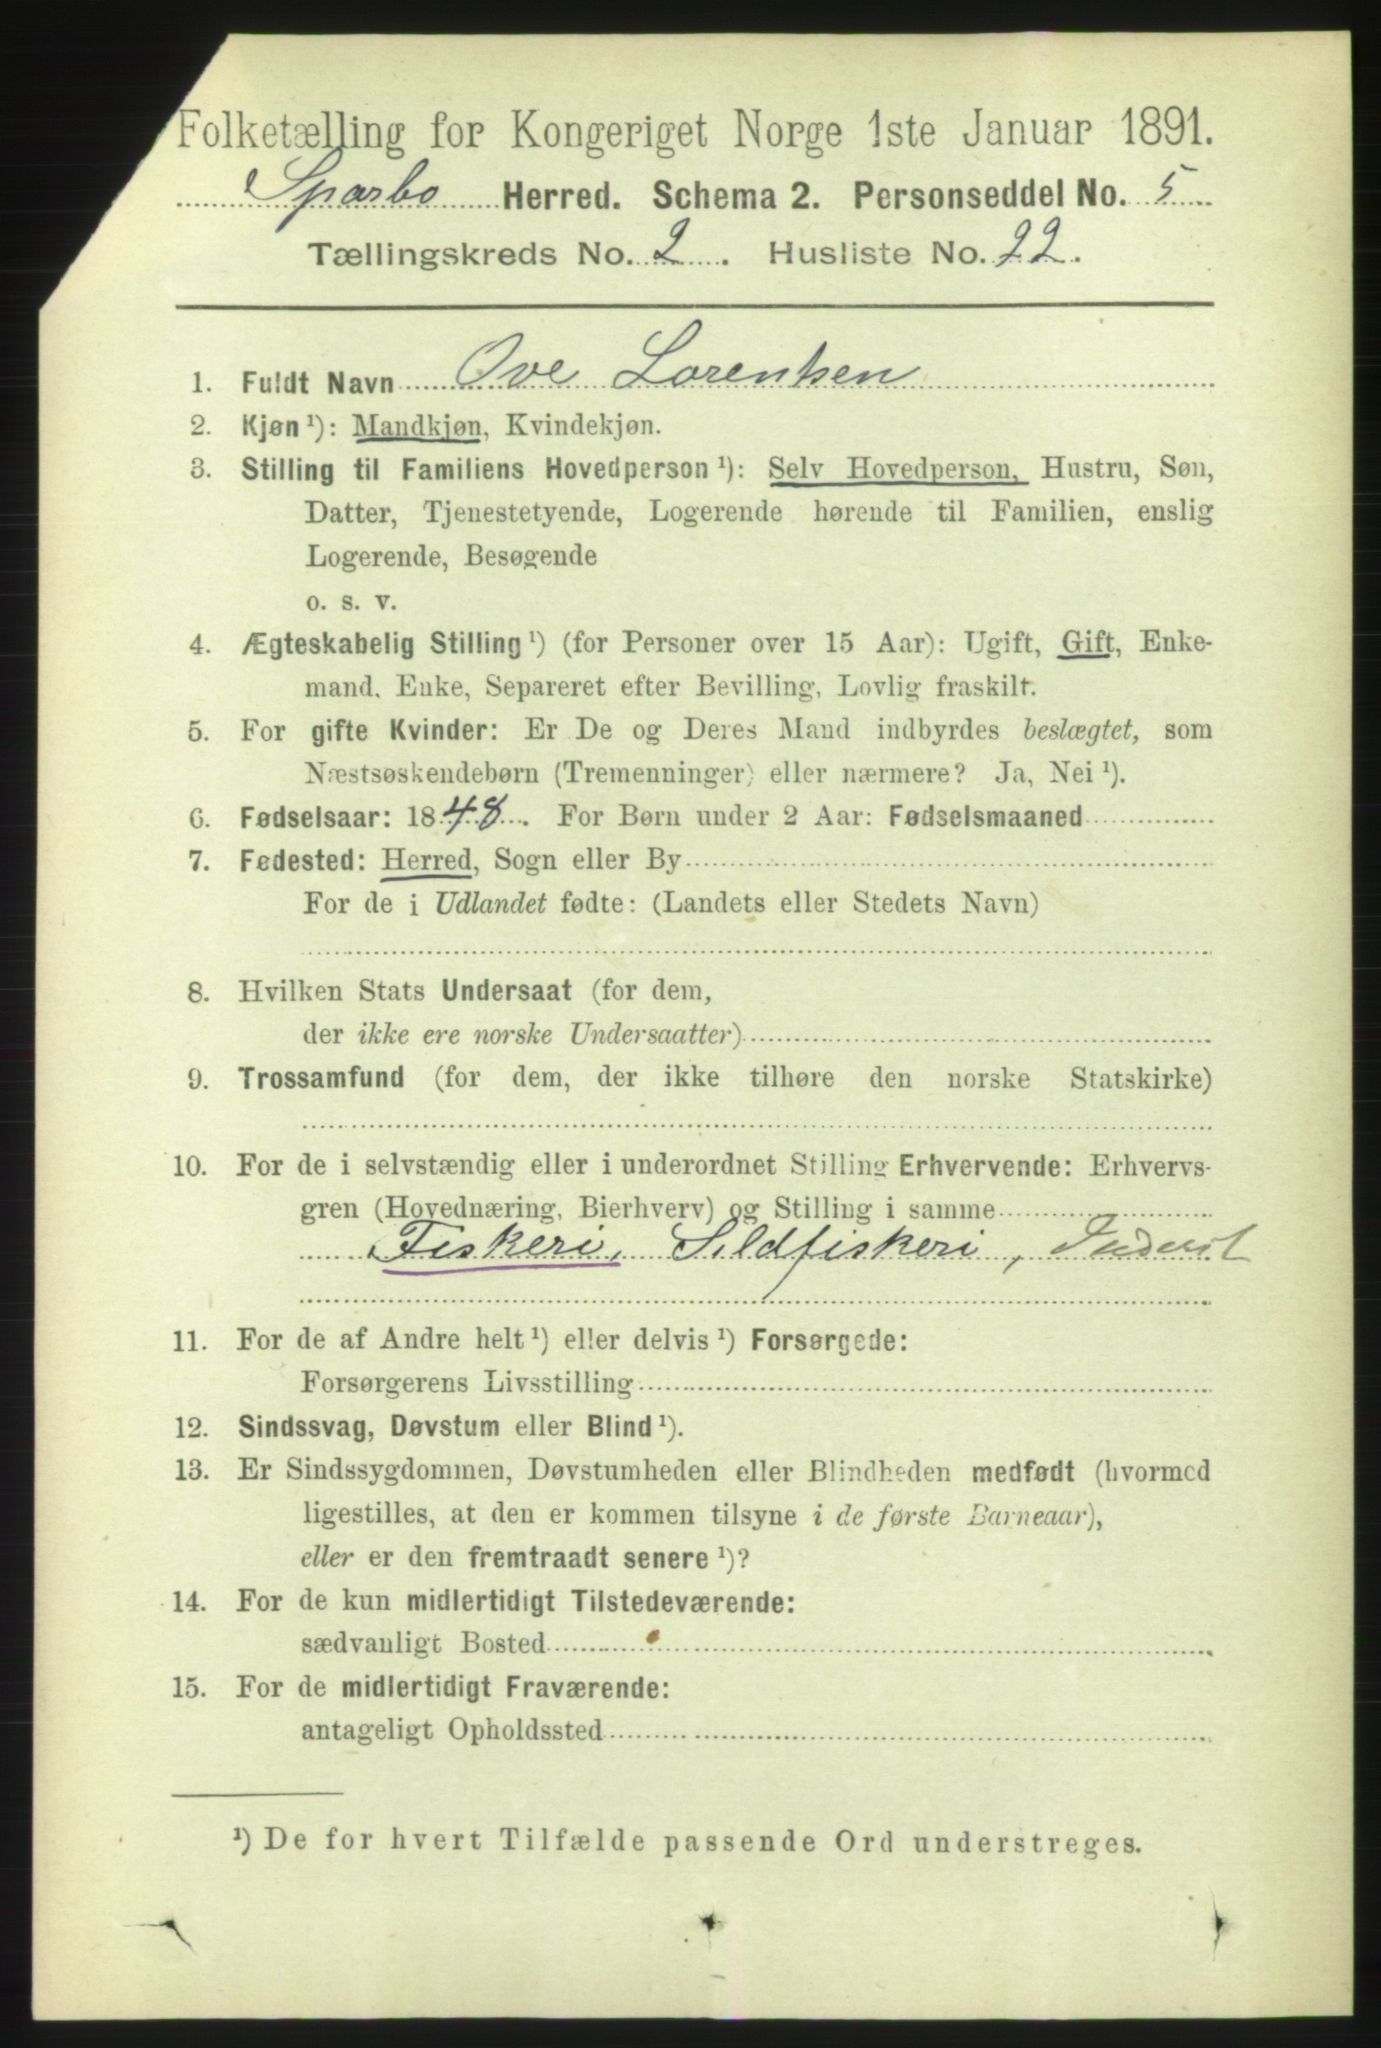 Folketælling for Kongeriget Norge 1ste Januar 1891.
Sparbo Herred. Schema 2. Personseddel No. 5
Tællingskreds No. 2. Husliste No. 22.
1. Fuldt Navn Ove Lorentsen
2. Kjøn ¹): Mandkjøn, Kvindekjøn.
3. Stilling til Familiens Hovedperson ¹): Selv Hovedperson, Hustru, Søn,
Datter, Tjenestetyende, Logerende hørende til Familien, enslig
Logerende, Besøgende
o. s. v.
4. Ægteskabelig Stilling ¹) (for Personer over 15 Aar): Ugift, Gift, Enke-
mand, Enke, Separeret efter Bevilling, Lovlig fraskilt.
5. For gifte Kvinder: Er De og Deres Mand indbyrdes beslægtet, som
Næstsøskendebørn (Tremenninger) eller nærmere? Ja, Nei ¹).
6. Fødselsaar: 1848. For Børn under 2 Aar: Fødselsmaaned
7. Fødested: Herred, Sogn eller By
For de i Udlandet fødte: (Landets eller Stedets Navn)
8. Hvilken Stats Undersaat (for dem,
der ikke ere norske Undersaatter)
9. Trossamfund (for dem, der ikke tilhøre den norske Statskirke)
10. For de i selvstændig eller i underordnet Stilling Erhvervende: Erhvervs-
gren (Hovednæring, Bierhverv) og Stilling i samme
Fiskeri, Sildfiskeri, Inderst
11. For de af Andre helt ¹) eller delvis ¹) Forsørgede:
Forsørgerens Livsstilling
12. Sindssvag, Døvstum eller Blind ¹).
13. Er Sindssygdommen, Døvstumheden eller Blindheden medfødt (hvormed
ligestilles, at den er kommen tilsyne i de første Barneaar),
eller er den fremtraadt senere ¹)?
14. For de kun midlertidigt Tilstedeværende:
sædvanligt Bosted
15. For de midlertidigt Fraværende:
antageligt Opholdssted
¹) De for hvert Tilfælde passende Ord understreges.